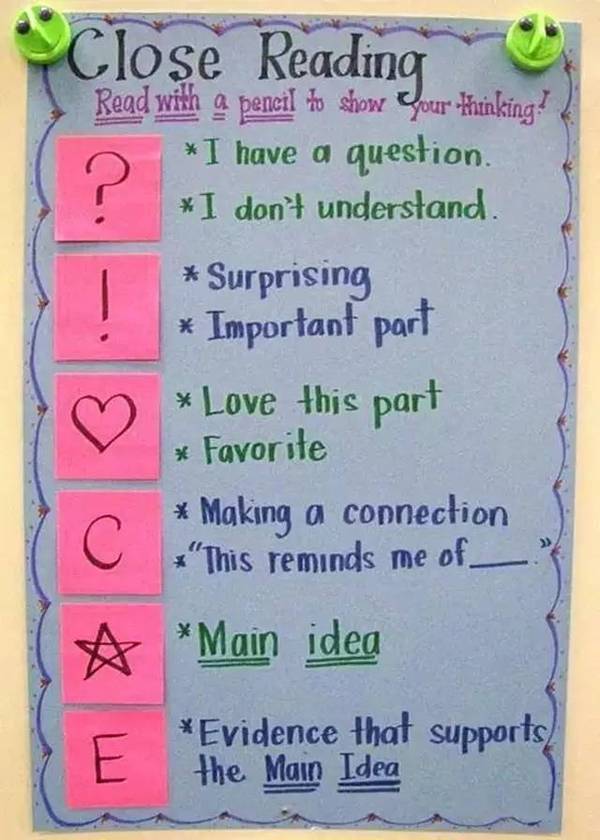 Close Reading
Read with a pencil to show your thinking!
?
*I have a question.
*I don't understand.
!
*Surprising
*Important part
*Love this part
*Favorite
C
*Making a connection
*"This reminds me of ____."
*Main idea
E
*Evidence that supports
the Main Idea